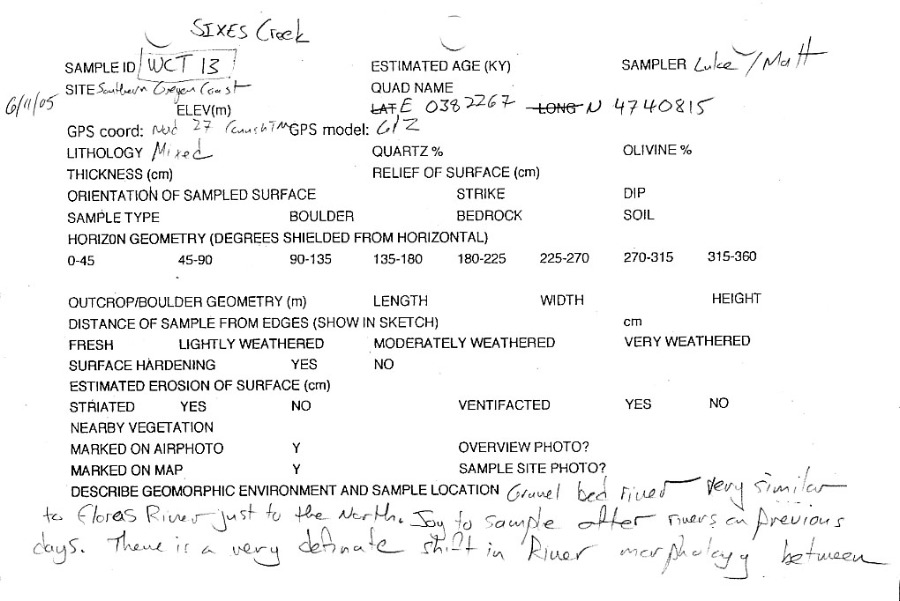 SIXES Creek
SAMPLE ID WCT 13 ESTIMATED AGE (KY) SAMPLER Luke / Matt
SITE Southern Oregon Coast QUAD NAME
6/11/05 ELEV(m) LAT E 0382267 LONG N 4740815
GPS coord: Nad 27 GPS model: 612
LITHOLOGY Mixed QUARTZ % OLIVINE %
THICKNESS (cm) RELIEF OF SURFACE (cm)
ORIENTATION OF SAMPLED SURFACE STRIKE DIP
SAMPLE TYPE BOULDER BEDROCK SOIL
HORIZON GEOMETRY (DEGREES SHIELDED FROM HORIZONTAL)
0-45 45-90 90-135 135-180 180-225 225-270 270-315 315-360
OUTCROP/BOULDER GEOMETRY (m) LENGTH WIDTH HEIGHT
DISTANCE OF SAMPLE FROM EDGES (SHOW IN SKETCH) cm
FRESH LIGHTLY WEATHERED MODERATELY WEATHERED VERY WEATHERED
SURFACE HARDENING YES NO
ESTIMATED EROSION OF SURFACE (cm)
STRIATED YES NO VENTIFACTED YES NO
NEARBY VEGETATION
MARKED ON AIRPHOTO Y OVERVIEW PHOTO?
MARKED ON MAP Y SAMPLE SITE PHOTO?
DESCRIBE GEOMORPHIC ENVIRONMENT AND SAMPLE LOCATION Gravel bed river very similar
to Floras River just to the North. Joy to sample after rivers on previous
days. There is a very definate shift in River morphology between